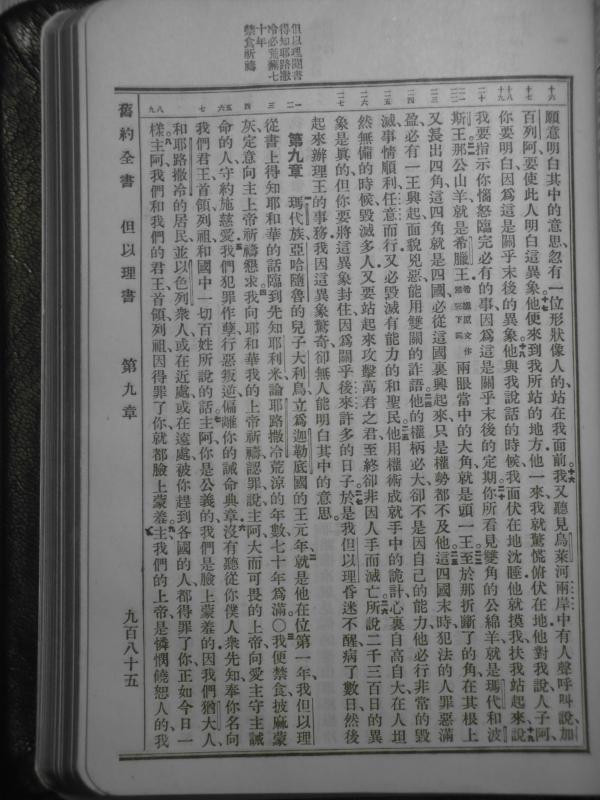 但以理閱書
得知耶路撒
冷必荒蕪七
十年
禁食祈禱
願意明白其中的意思忽有一位形狀像人的站在我面前我又聽見烏萊河兩岸中有人聲呼叫說加
百列阿要使此人明白這異象他便來到我所站的地方他一來我就驚慌俯伏在地他對我說人子阿
你要明白因爲這是關乎末後的異象他與我說話的時候我面伏在地沈睡他就摸我扶我站起來說
我要指示你惱怒臨完必有的事因爲這是關乎末後的定期你所看見雙角的公綿羊就是瑪代和波
斯王那公山羊就是希臘王希臘原文作雅完下同兩眼當中的大角就是頭一王至於那折斷了的角在其根上
又長出四角這四角就是四國必從這國裏興起來只是權勢都不及他這四國末時犯法的人罪惡滿
盈必有一王興起面貌兇惡能用雙關的詐語他的權柄必大卻不是因自己的能力他必行非常的毀
滅事情順利任意而行又必毀滅有能力的和聖民他用權術成就手中的詭計心裏自高自大在人坦
然無備的時候毀滅多人又要站起來攻擊萬君之君至終卻非因人手而滅亡所說二千三百日的異
象是眞的但你要將這異象封住因爲關乎後來許多的日子於是我但以理昏迷不醒病了數日然後
起來辦理王的事務我因這異象驚奇卻無人能明白其中的意思
第九章 瑪代族亞哈隨魯的兒子大利烏立爲迦勒底國的王元年就是他在位第一年我但以理
從書上得知耶和華的話臨到先知耶利米論耶路撒冷荒涼的年數七十年爲滿○我便禁食披麻蒙
灰定意向主上帝祈禱懇求我向耶和華我的上帝祈禱認罪說主阿大而可畏的上帝向愛主守主誡
命的人守約施慈愛我們犯罪作孽行惡叛逆偏離你的誡命典章沒有聽從你僕人衆先知奉你名向
我們君王首領列祖和國中一切百姓所說的話主阿你是公義的我們是臉上蒙羞的因我們猶大人
和耶路撒冷的居民並以色列衆人或在近處或在遠處被你趕到各國的人都得罪了你正如今日一
樣主阿我們和我們的君王首領列祖因得罪了你就都臉上蒙羞主我們的上帝是憐憫饒恕人的我
舊約全書 但以理書 第九章 九百八十五